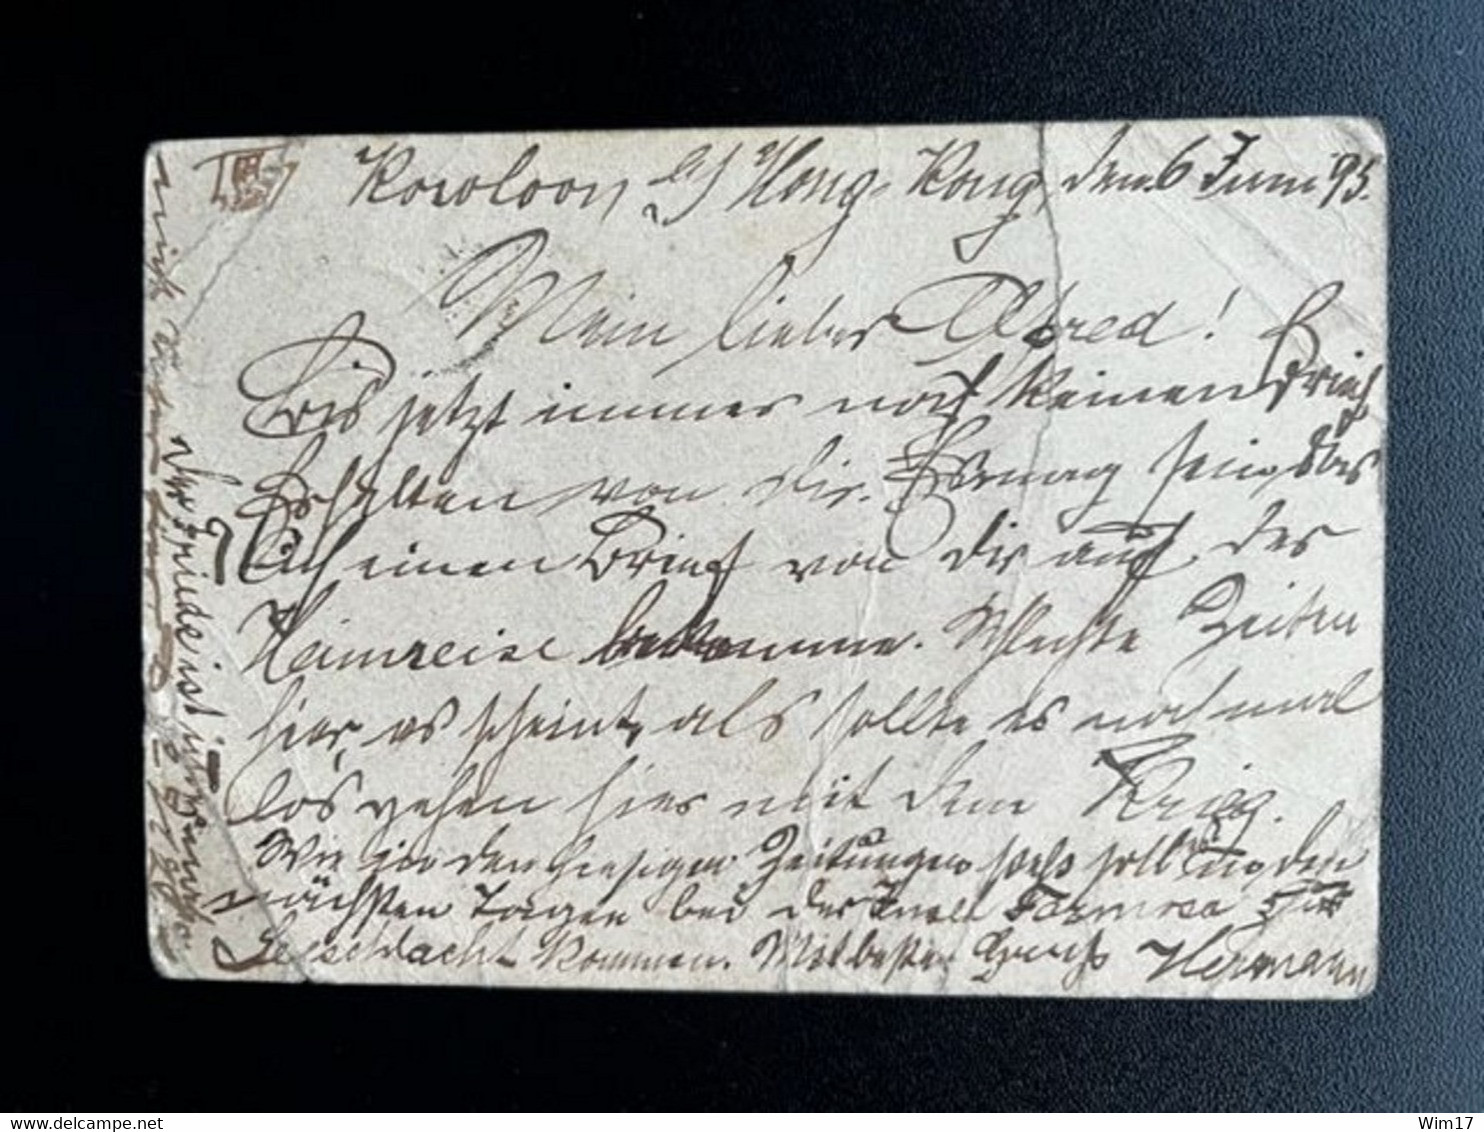 III
Kowloon, Hong-Kong, den 6 Juni 95.
Mein lieber Alfred!
Bis jetzt immer noch keinen Brief
Erhalten von dir.
ich einen Brief von dir auf der
Heimreise bekomme. Schlechte Zeiten
hier, es scheint, als sollte es noch mal
los gehen hier mit dem Krieg.
Wie in den hiesigen Zeitungen steht soll in den
nächsten Tagen bei der Insel Formosa zur
Seeschlacht kommen. Mit besten Gruß Hermann
Der Friede ist
delcampe.net
Wim17